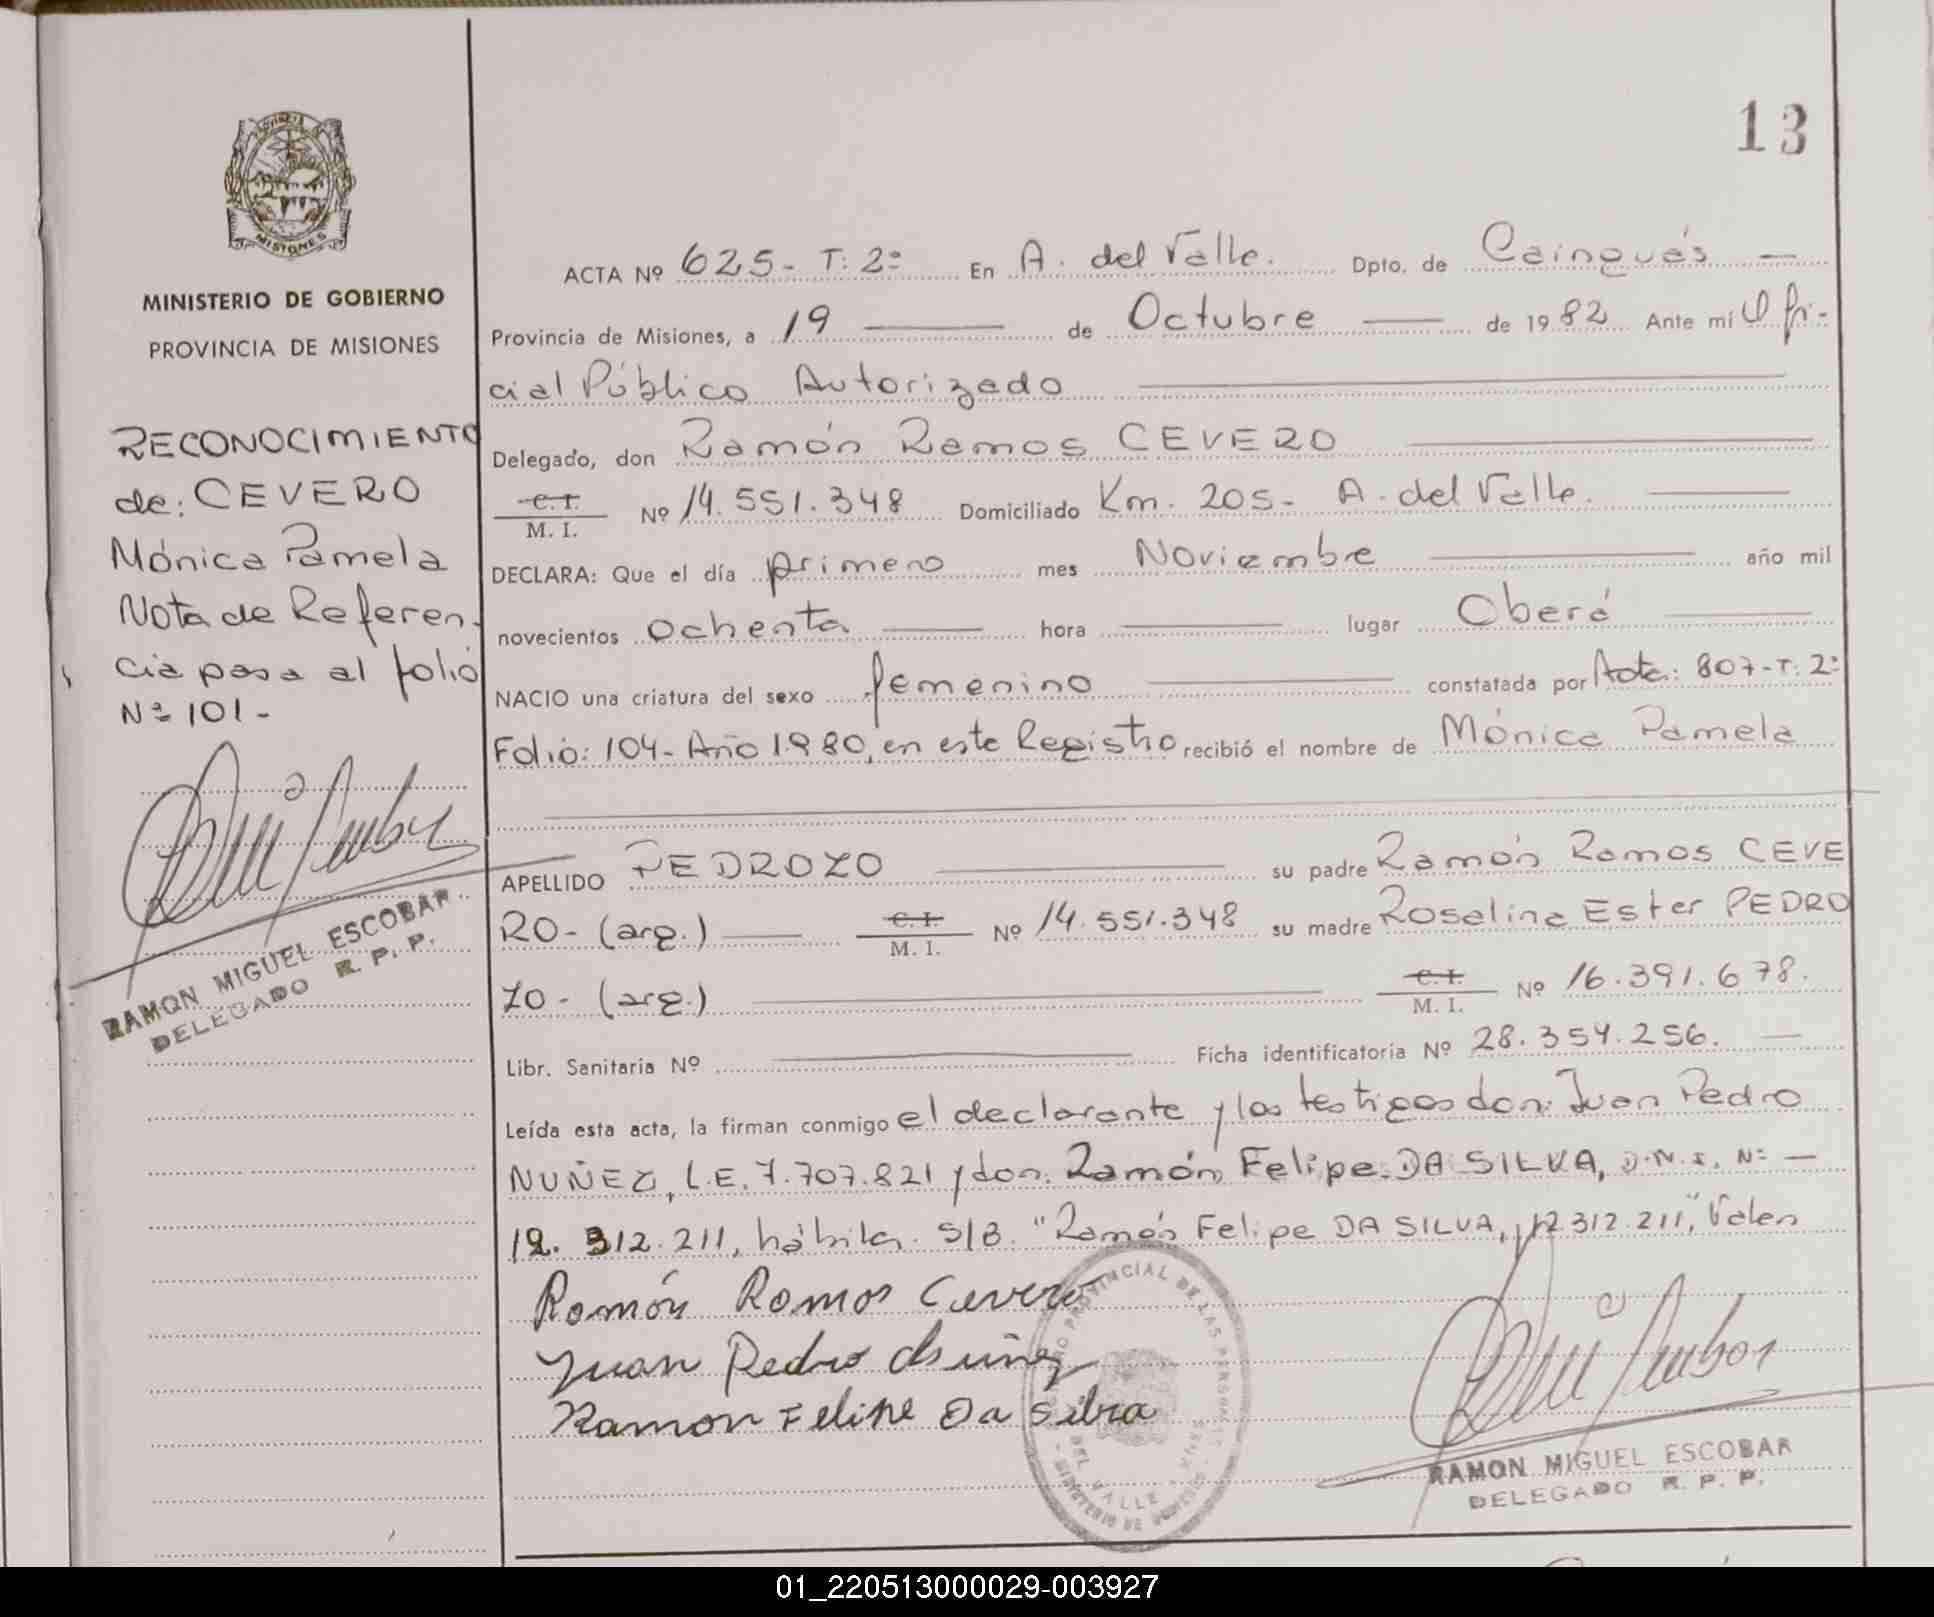 13
PROVINCIA DE
MISIONES
MINISTERIO DE GOBIERNO
PROVINCIA DE MISIONES
RECONOCIMIENTO
de: CEVERO
Mónica Pamela
Nota de Referen-
cia pasa al folio
Nº 101-
RAMON MIGUEL ESCOBAR
DELEGADO R. P. P.
ACTA Nº 625- T: 2º En A. del Valle. Dpto. de Cainguás —
Provincia de Misiones, a 19 — de Octubre — de 1982 Ante mí Ofi-
cial Público Autorizado
Delegado, don Ramón Ramos CEVERO
C. I.
M. I. Nº 14.551.348 Domiciliado Km. 205- A. del Valle.
DECLARA: Que el día primero mes Noviembre año mil
novecientos ochenta — hora — lugar Oberá
NACIO una criatura del sexo femenino constatada por Acta: 807-T: 2º
Folio: 104- Año 1980, en este Registro recibió el nombre de Mónica Pamela
APELLIDO PEDROZO su padre Ramón Ramos CEVE
RO- (arg.) — C. I.
M. I. Nº 14.551.348 su madre Roselina Ester PEDRO
ZO- (arg.) C. I.
M. I. Nº 16.391.678.
Libr. Sanitaria Nº — Ficha identificatoria Nº 28.354.256. —
Leída esta acta, la firman conmigo el declarante y los testigos don: Juan Pedro
NUÑEZ, L.E. 7.707.821 y don: Ramón Felipe DA SILVA, D.N.I. Nº —
12.312.211, hábiles. S/B. "Ramón Felipe DA SILVA, 12.312.211," Valen
Ramón Ramos Cevero
Juan Pedro Nuñez
Ramon Felipe Da Silva
REGISTRO PROVINCIAL DE LAS PERSONAS
DEL VALLE
RAMON MIGUEL ESCOBAR
DELEGADO R. P. P.
01_220513000029-003927